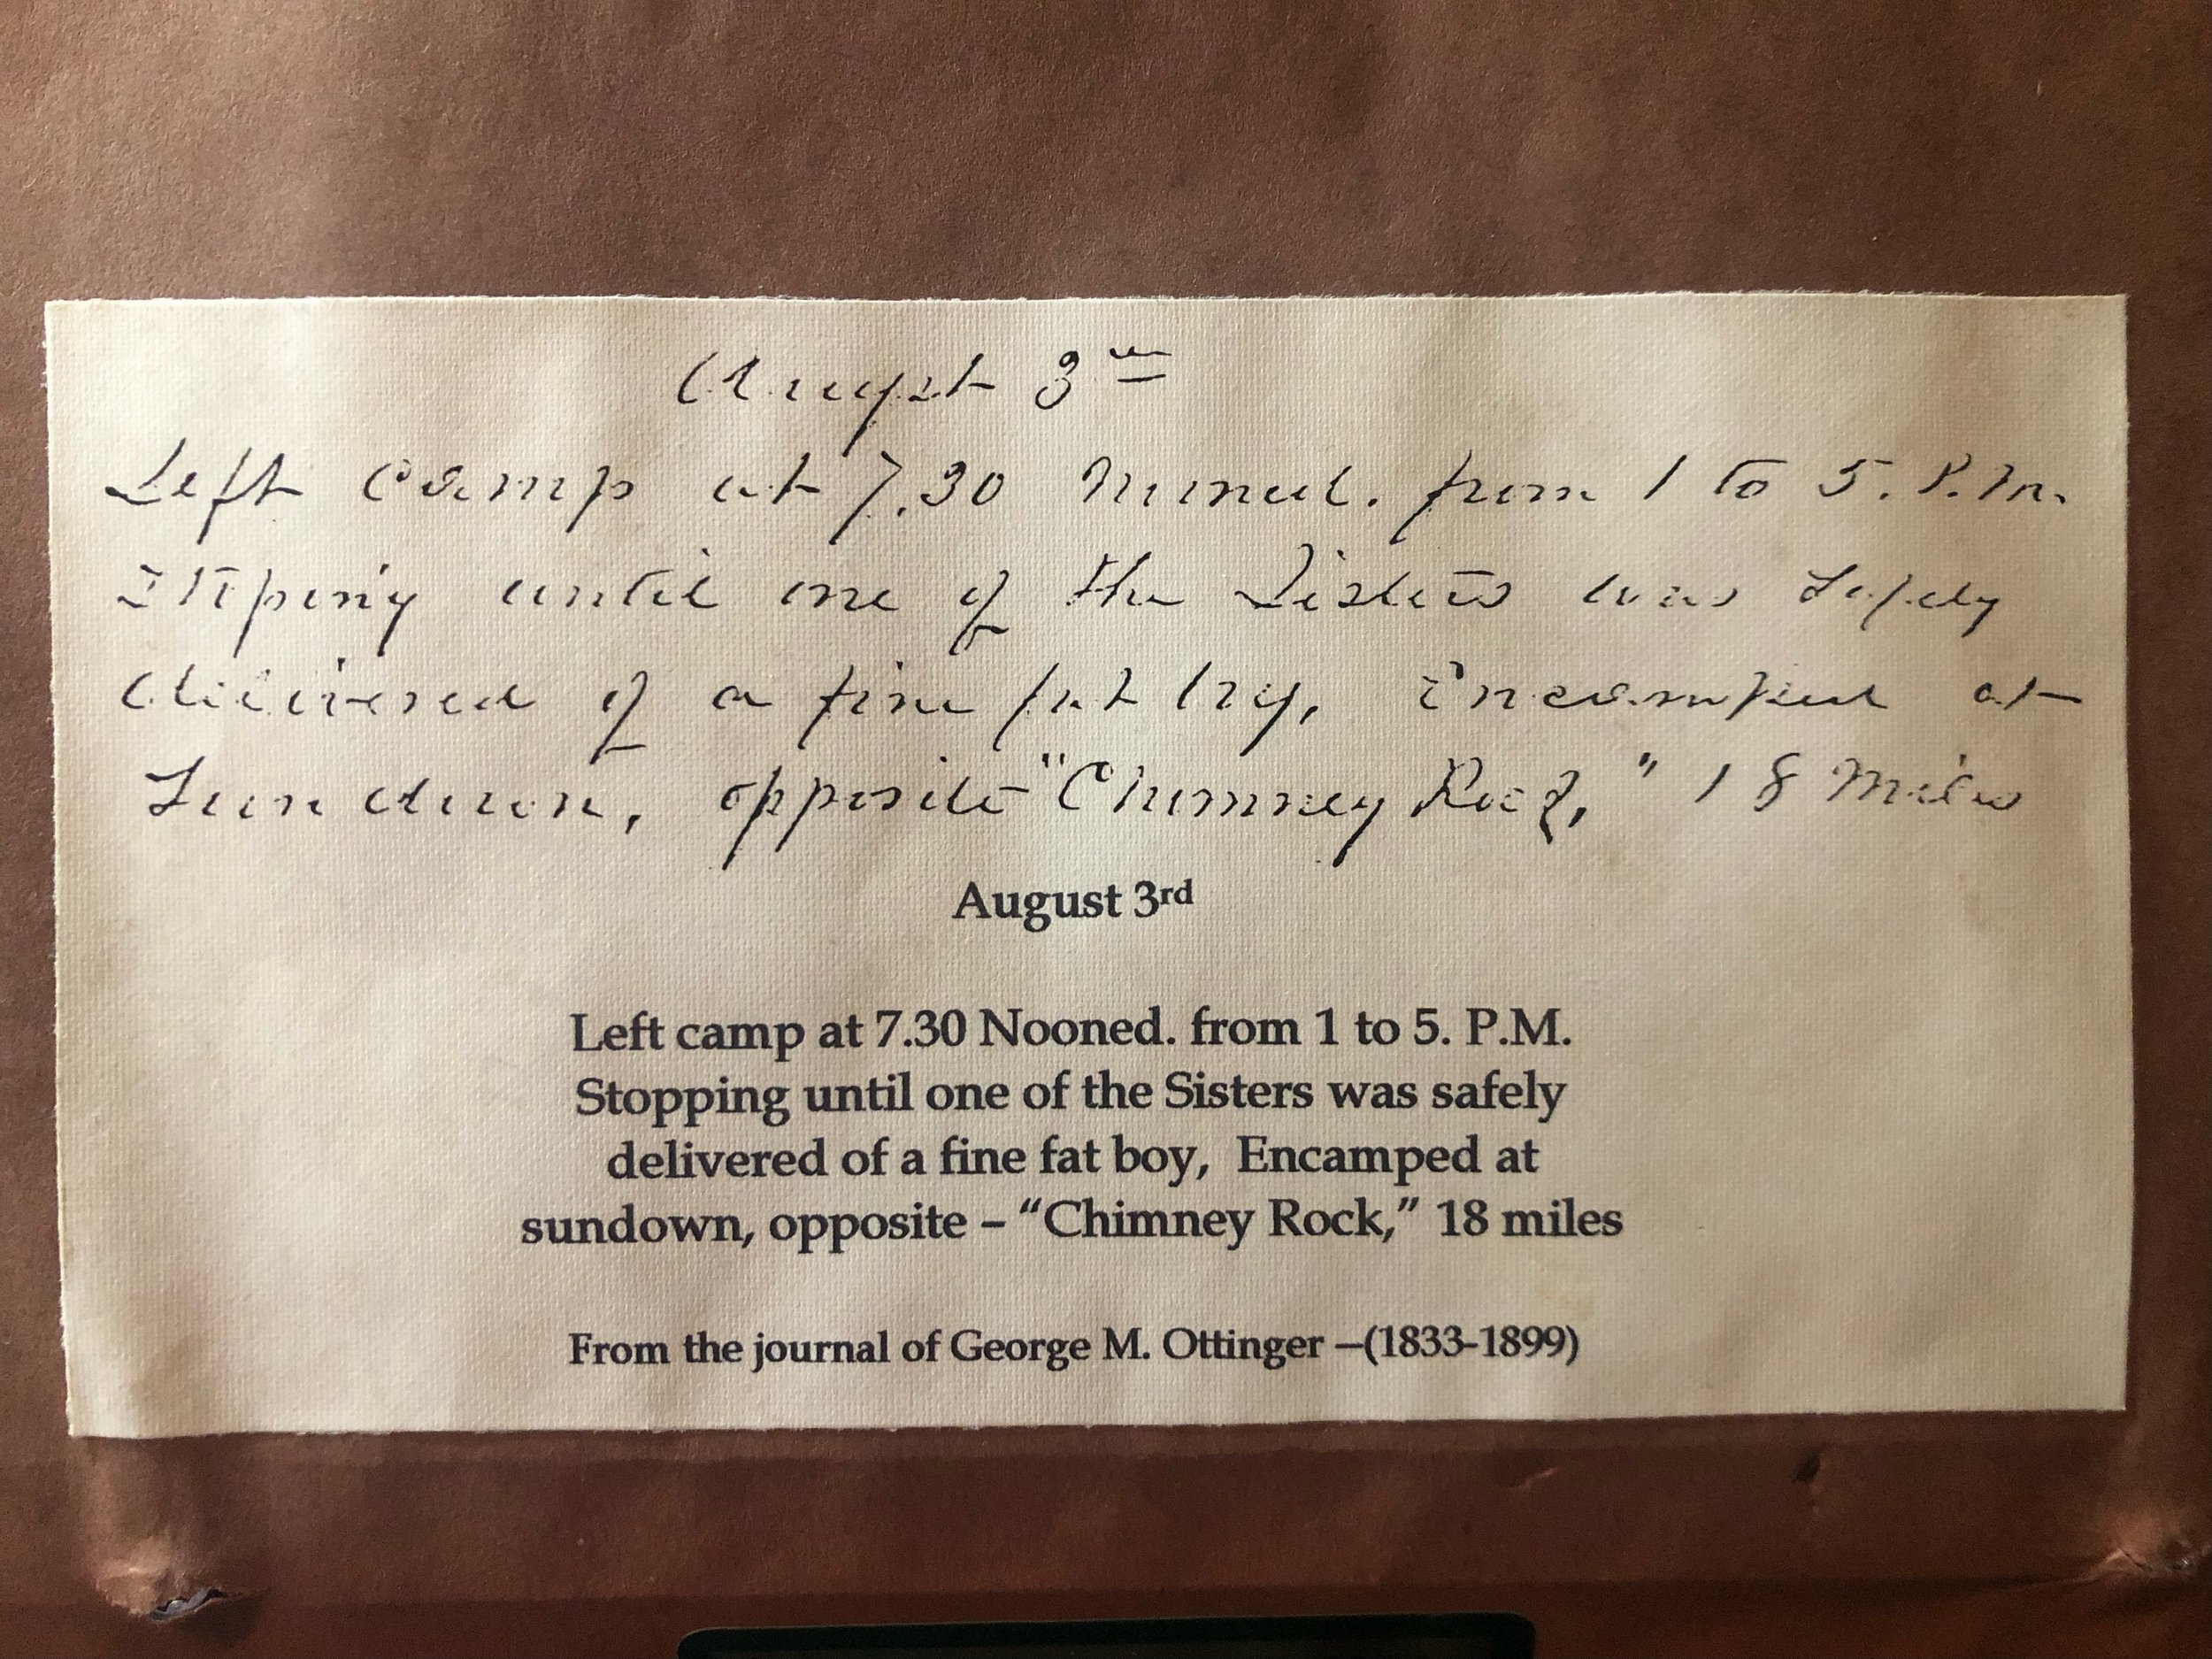 August 3rd
Left Camp at 7.30 Nooned. from 1 to 5. P.M.
Stoping until one of the Sisters was Safely
delivered of a fine fat boy, Encamped at
Sundown, opposite "Chimney Rock," 18 Miles
August 3rd
Left camp at 7.30 Nooned. from 1 to 5. P.M.
Stopping until one of the Sisters was safely
delivered of a fine fat boy, Encamped at
sundown, opposite – “Chimney Rock,” 18 miles
From the journal of George M. Ottinger –(1833-1899)